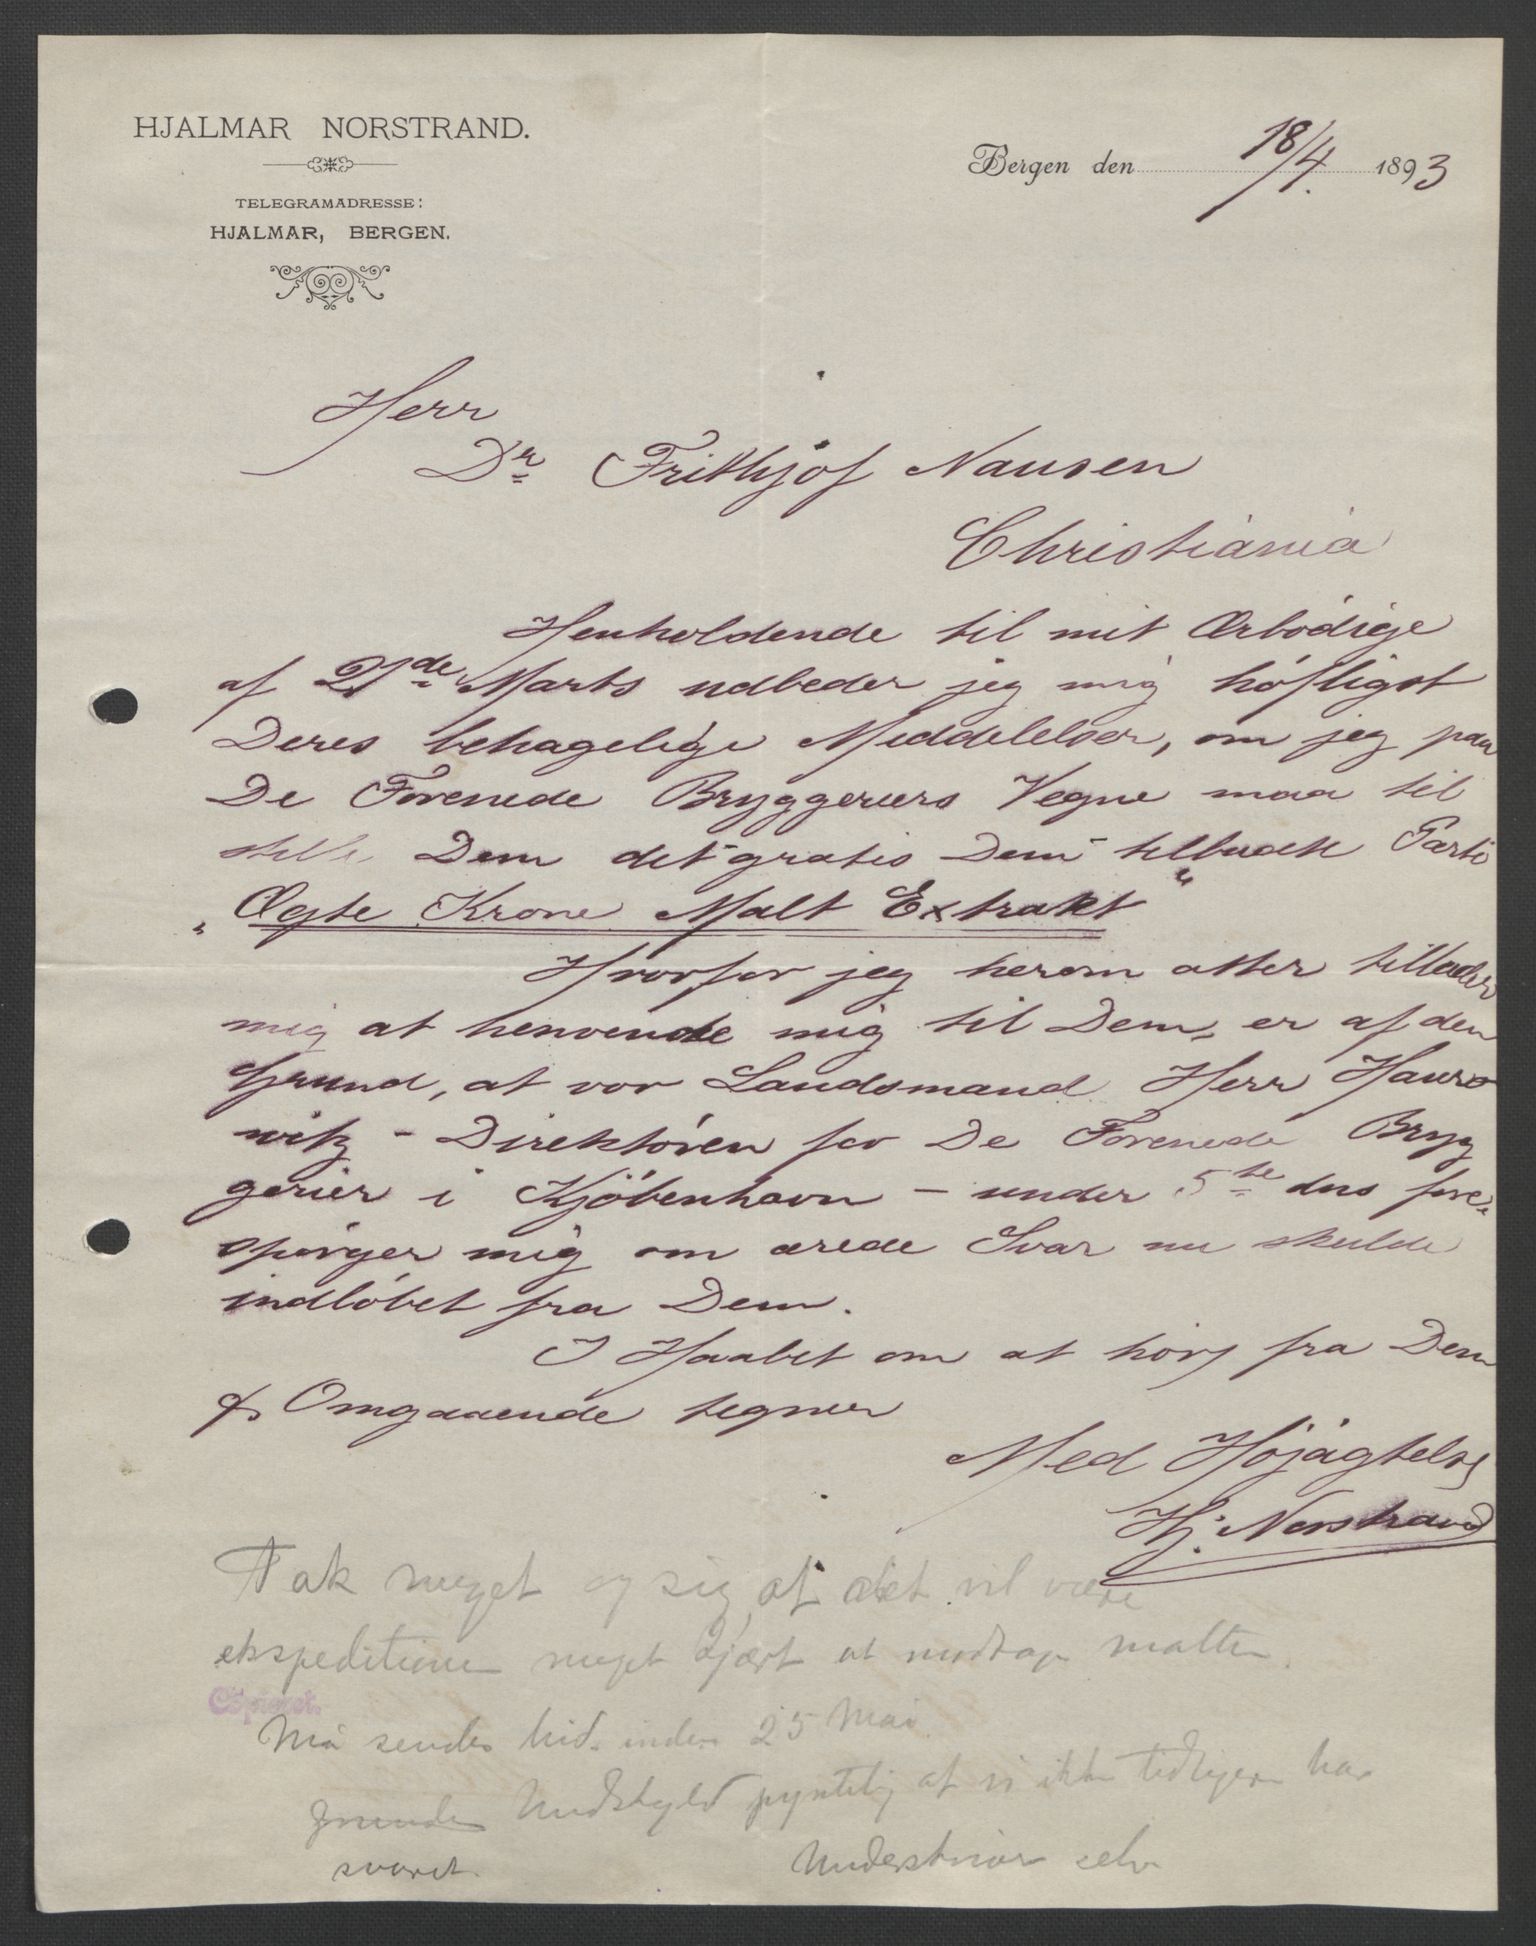 HJALMAR NORSTRAND.
TELEGRAMADRESSE:
HJALMAR, BERGEN.
Bergen den 18/4. 1893
Herr
Dr Frithjof Nansen
Christiania
Henholdende til mit Ærbödige
af 21de Marts udbeder jeg mig höfligst
Deres behagelige Meddelelser, om jeg paa
De Forenede Bryggeriers Vegne maa til
stille Dem det gratis Dem tilbudte Parti
„Ægte Krone Malt Extrakt"
Hvorfor jeg herom atter tillader
mig at henvende mig til Dem, er af den
Grund, at vor Landsmand Herr Hauro
witz - Direktören for De Forenede Bryg
gerier i Kjöbenhavn - under 5te ds fore
spörger mig om ærede Svar nu skulde
indlöbet fra Dem.
I Haabet om at höre fra Dem
pr Omgaaende tegner
Med Höjagtelse
Hj. Norstrand
Tak meget og sig at det vil være
ekspeditionen meget kjært at modtage malten.
Copieret.
Må sendes hid inden 25 Mai
Undskyld at vi ikke tidligere har
svaret.
Underskriver selv